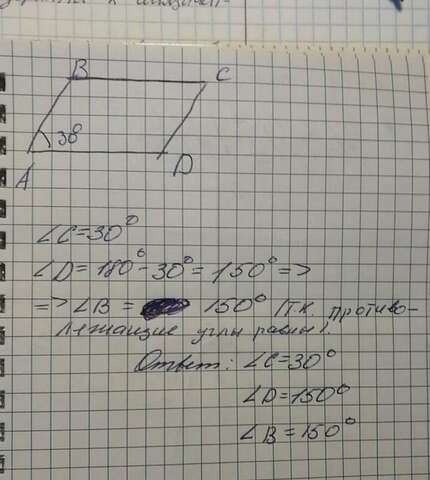 B C
30°
A D
∠C=30°
∠D=180°-30°=150° =>
=> ∠B = 150° (т.к. противо-
лежащие углы равны).
Ответ: ∠C=30°
∠D=150°
∠B=150°